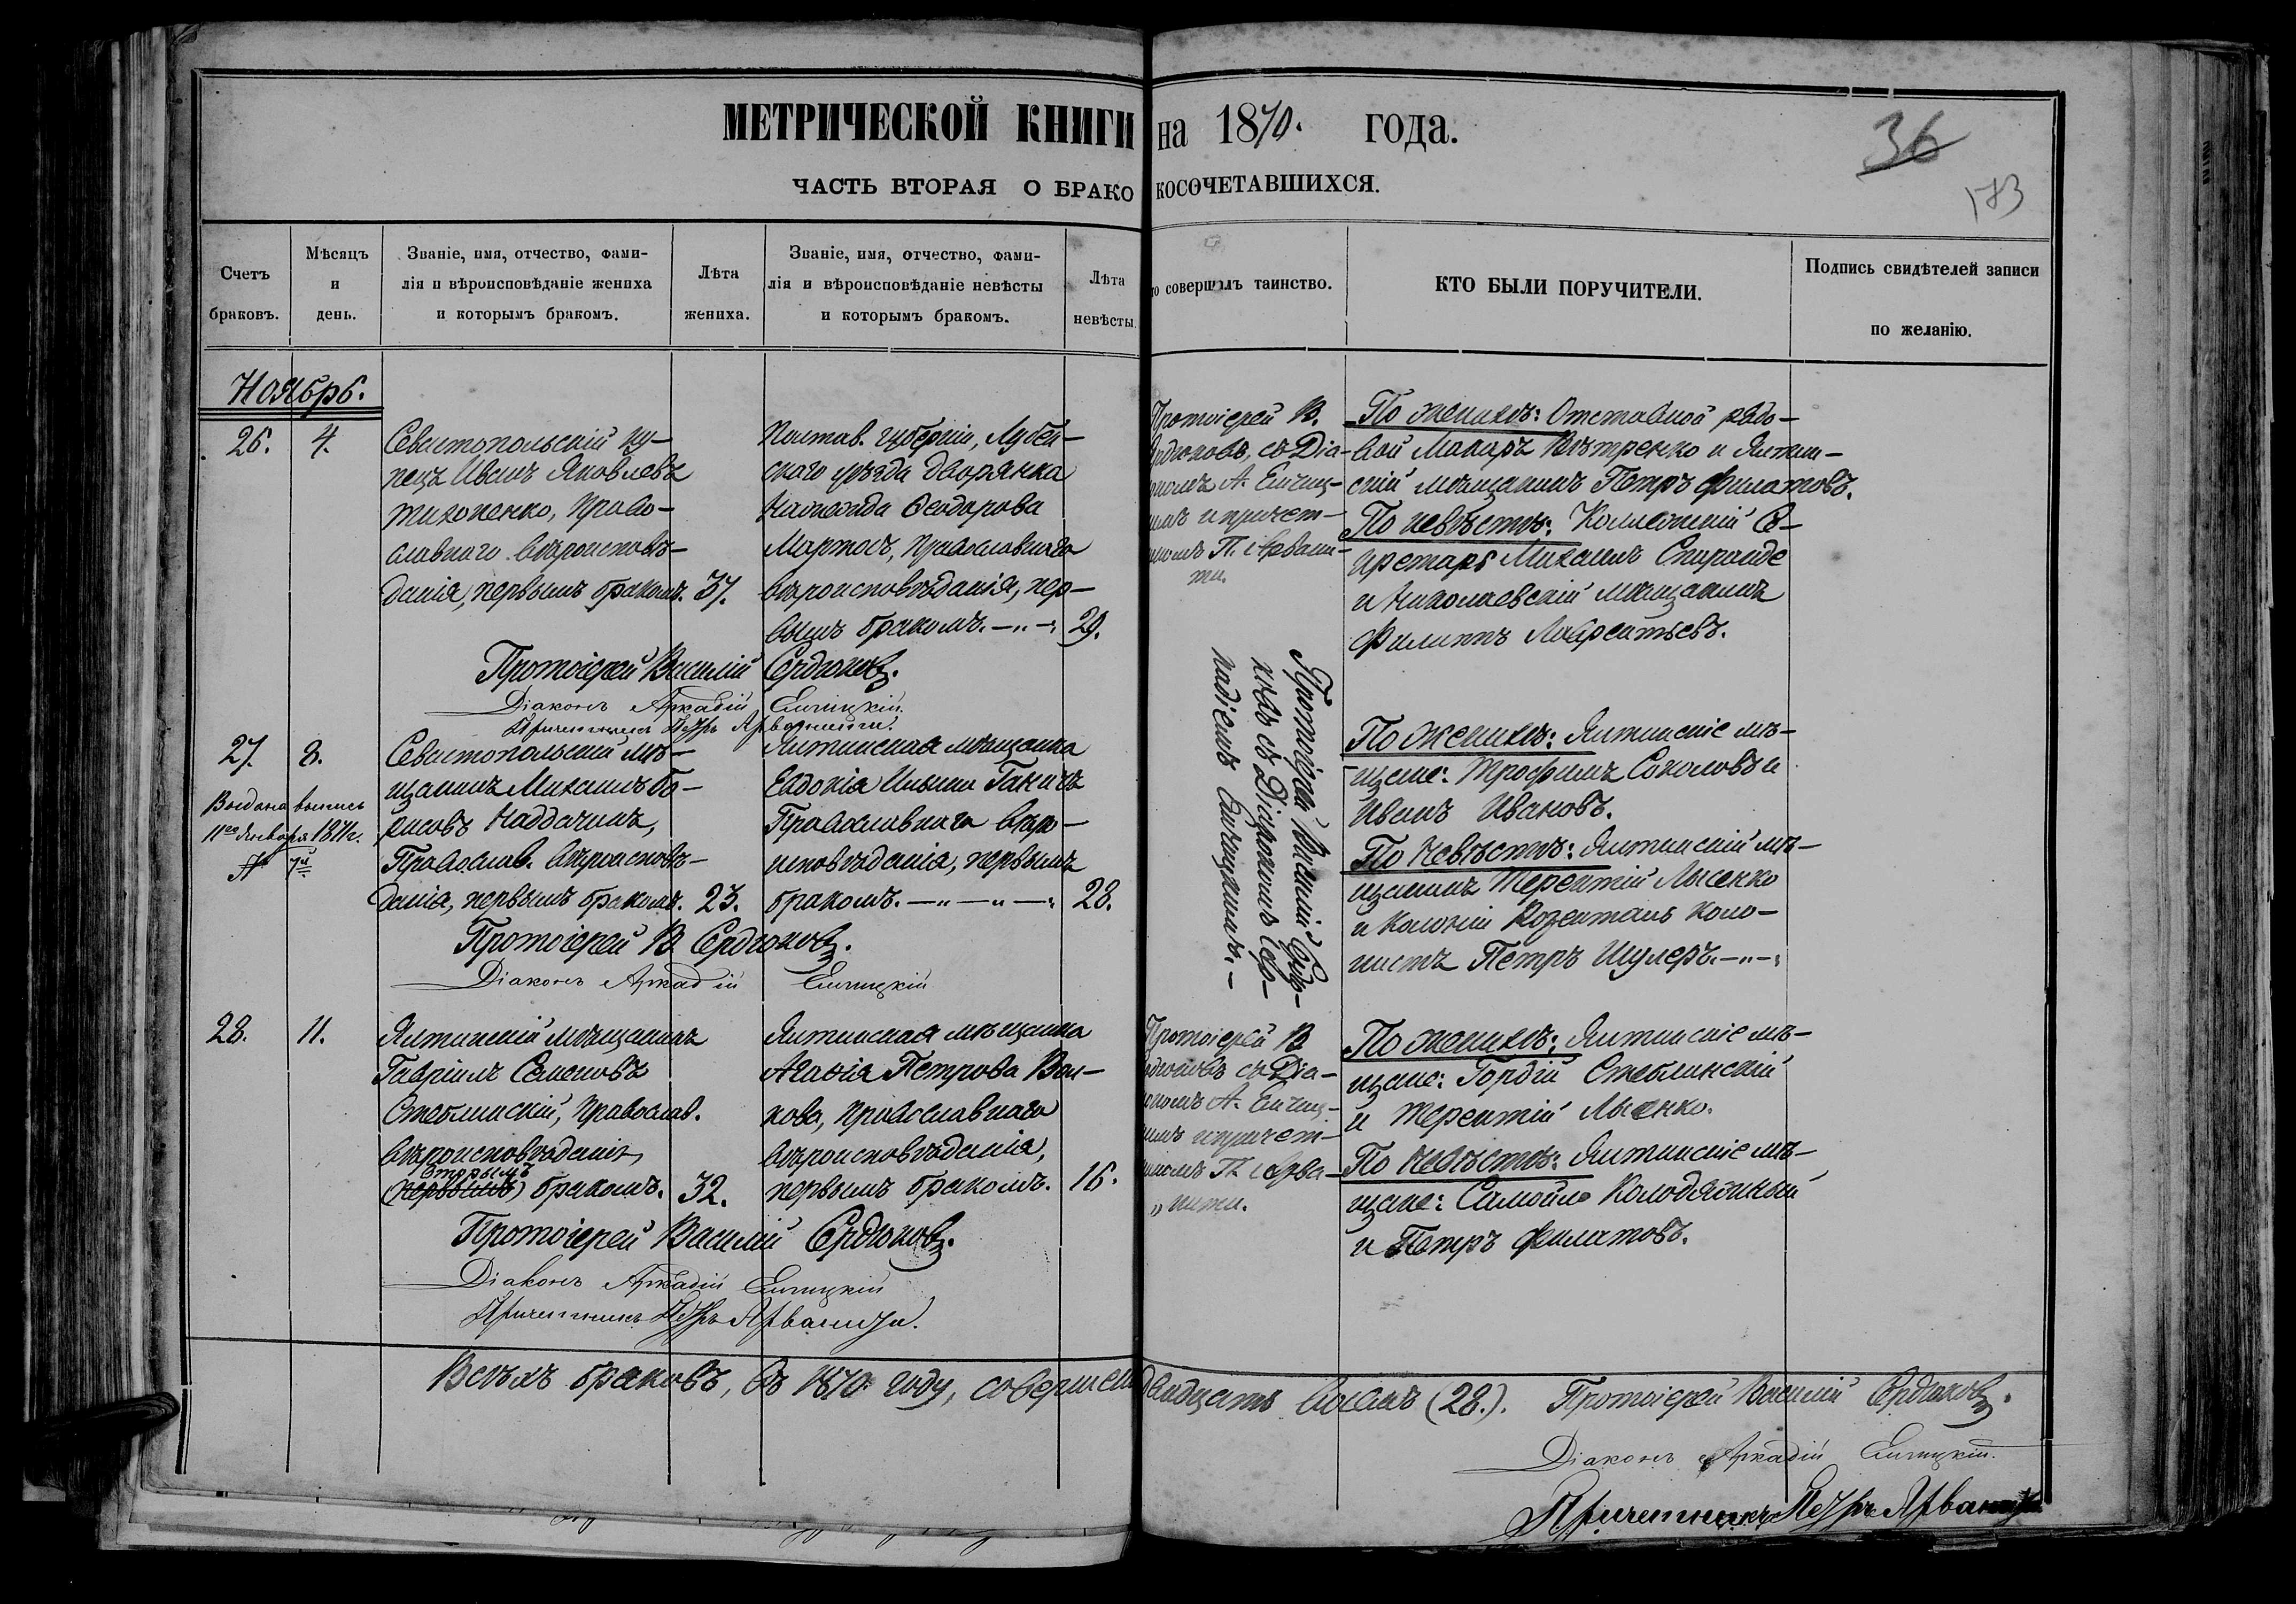 МЕТРИЧЕСКОЙ КНИГИ на 1870. года.
36
173
ЧАСТЬ ВТОРАЯ О БРАКОСОЧЕТАВШИХСЯ.
Счетъ браковъ.
Мѣсяцъ и день.
Званіе, имя, отчество, фами-
лія и вѣроисповѣданіе жениха
и которымъ бракомъ.
Лѣта жениха.
Званіе, имя, отчество, фами-
лія и вѣроисповѣданіе невѣсты
и которымъ бракомъ.
Лѣта невѣсты.
то совершалъ таинство.
КТО БЫЛИ ПОРУЧИТЕЛИ.
Подпись свидѣтелей записи
по желанію.
Ноябрь.
26. 4.
Севастопольскій ку-
пецъ Иванъ Яковлевъ
Тихоненко, Право-
славнаго вѣроисповѣ-
данія, первымъ бракомъ. 37.
Полтав. губерніи, Лубен-
скаго уѣзда дворянка
Надежда Ѳеодорова
Мартосъ, православнаго
вѣроисповѣданія, пер-
вымъ бракомъ. 29.
Протоіерей В.
Сердюковъ, съ Діа-
кономъ А. Енчиц-
кимъ и причет-
никомъ П. Арвани-
ти.
По женихѣ: Отставной рядо-
вой Макаръ Вѣтренко и Ялтин-
скій мѣщанинъ Петръ Филатовъ.
По невѣстѣ: Коллежскій Се-
кретарь Михаилъ Спиранде
и Николаевскій мѣщанинъ
Филиппъ Лаврентьевъ.
Протоіерей Василій Сердюковъ.
Діаконъ Аркадій Енчицкій.
Причетникъ Петръ Арванити.
27. 8.
Выдана выпись
11го Января 1871 г.
№ 7й
Севастопольскій мѣ-
щанинъ Михаилъ Бо-
рисовъ Наддачинъ,
Православ. вѣроисповѣ-
данія, первымъ бракомъ. 23.
Ялтинская мѣщанка
Евдокія Ильина Гакичъ
Православнаго вѣро-
исповѣданія, первымъ
бракомъ. 28.
Протоіерей Василій Серд-
юковъ съ Діакономъ Ар-
кадіемъ Енчицкимъ.
По женихѣ: Ялтинскіе мѣ-
щане: Трофимъ Соколовъ и
Иванъ Ивановъ.
По невѣстѣ: Ялтинскій мѣ-
щанинъ Терентій Лысенко
и колоніи Розенталь коло-
нистъ Петръ Шулеръ.
Протоіерей В Сердюковъ.
Діаконъ Аркадій Енчицкій
28. 11.
Ялтинскій мѣщанинъ
Гавріилъ Семеновъ
Стеблинскій, Православ.
вѣроисповѣданія,
вторымъ
(первымъ) бракомъ. 32.
Ялтинская мѣщанка
Агафія Петрова Вол-
кова, православнаго
вѣроисповѣданія,
первымъ бракомъ. 16.
Протоіерей В
Сердюковъ съ Діа-
кономъ А. Енчиц-
кимъ и причет-
никомъ П. Арва-
„нити.
По женихѣ: Ялтинскіе мѣ-
щане: Гордій Стеблинскій
и Терентій Лысенко.
По невѣстѣ: Ялтинскіе мѣ-
щане: Самойло Колодяжный
и Петръ Филатовъ.
Протоіерей Василій Сердюковъ.
Діаконъ Аркадій Енчицкій
Причетникъ Петръ Арванити.
Всѣхъ браковъ, въ 1870 году, совершено двадцать восемь (28.). Протоіерей Василій Сердюковъ.
Діаконъ Аркадій Енчицкій.
Причетникъ Петръ Арванити